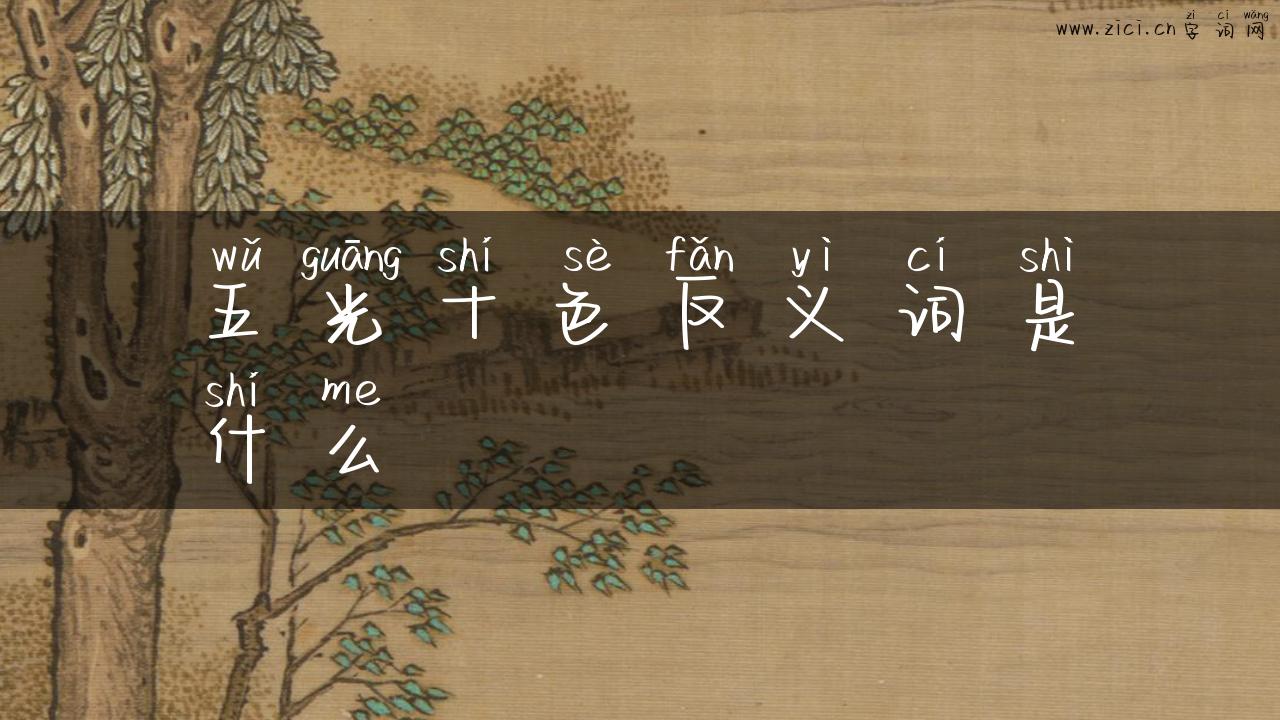 zì cí wǎng
www.zici.cn 字词网
wǔ guāng shí sè fǎn yì cí shì
五光十色反义词是
shí me
什么